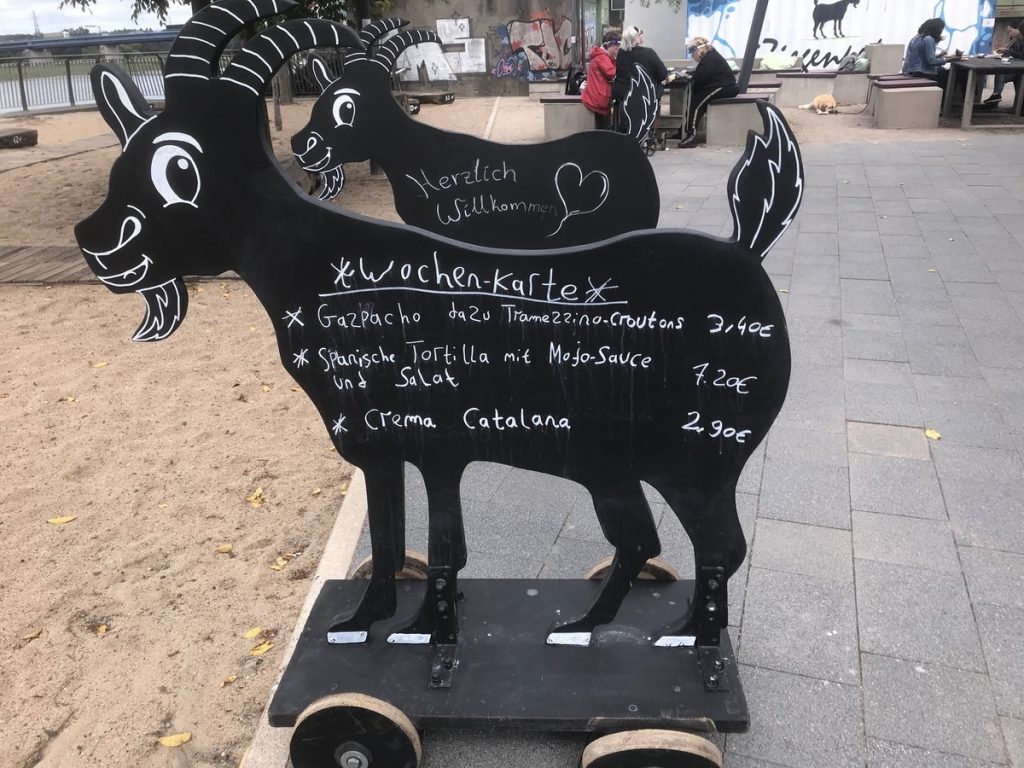 Herzlich
Willkommen
*Wochen-Karte*
* Gazpacho dazu Tramezzino-Croutons 3,40€
* Spanische Tortilla mit Mojo-Sauce
und Salat 7.20€
* Crema Catalana 2,90€